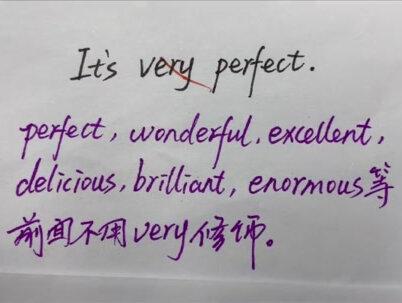 It's very perfect.
perfect, wonderful, excellent,
delicious, brilliant, enormous等
前面不用very修饰。